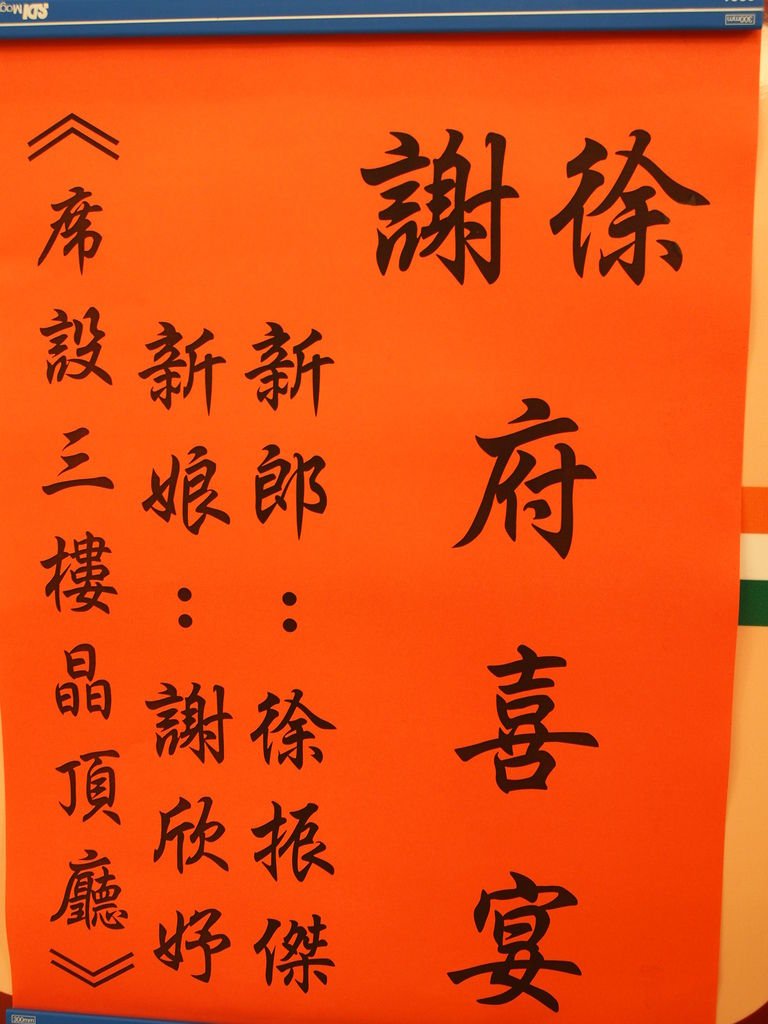 徐謝府喜宴
新郎：徐振傑
新娘：謝欣妤
《席設三樓晶頂廳》
SDI
300mm
300mm